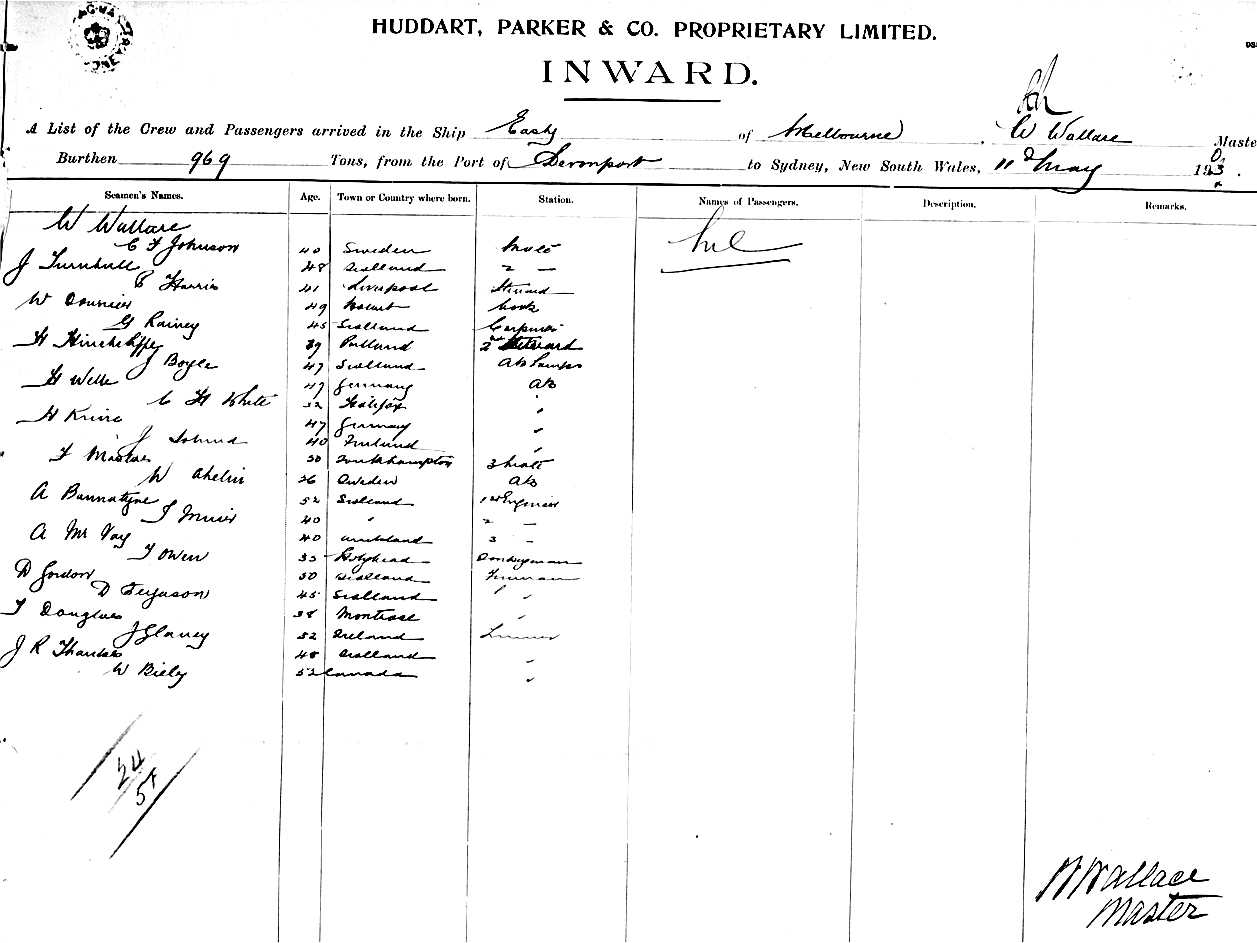 HUDDART, PARKER & CO. PROPRIETARY LIMITED.
INWARD.
A List of the Crew and Passengers arrived in the Ship Easby of Melbourne, W Wallace Maste
Burthen 969 Tons, from the Port of Devonport to Sydney, New South Wales, 11 May 1903.
Seamen's Names. Age. Town or Country where born. Station. Names of Passengers. Description. Remarks.
W Wallace Nil
C F Johnson 40 Sweden Mate
J Turnbull 48 Scotland 2 —
C Harris 41 Liverpool Steward
W 49 Hobart Cook
G Rainey 45 Scotland
H Hinchcliffe 39 2nd Steward
J Boyle 47 Scotland AB Lamps
H 47 Germany AB
C H White 32 Halifax "
H 47 Germany "
J 40 Finland "
F 30 Southampton 3 Mate
W 26 Sweden AB
A Bannatyne 52 Scotland 1st Engineer
J 40 " 2 —
A 40 Auckland 3 —
J Owen 33 Holyhead Donkeyman
D Gordon 30 Scotland Fireman
D Ferguson 45 Scotland "
T Douglas 38 Montrose "
J Glancy 52 Ireland
J R 48 Scotland "
W 52 Canada "
24
5
W Wallace
Master